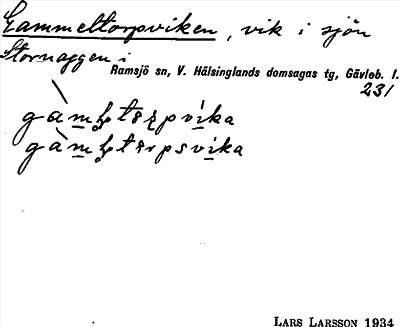 Gammeltorpviken, vik i sjön
Stornaggen i
Ramsjö sn, V. Hälsinglands domsagas tg, Gävleb. l.
231
LARS LARSSON 1934